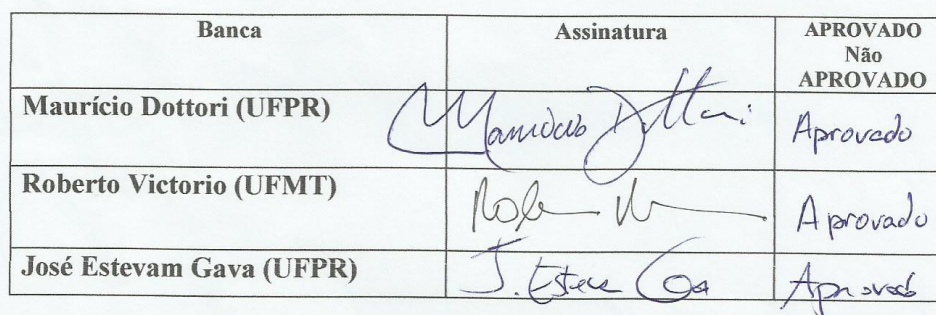 Banca Assinatura APROVADO
Não
APROVADO
Maurício Dottori (UFPR) Mauricio Dottori Aprovado
Roberto Victorio (UFMT) Aprovado
José Estevam Gava (UFPR) J. Estevam Gava Aprovado